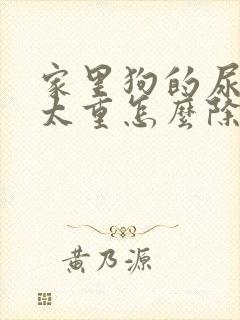 家里狗的尿
太重怎麼除
黄乃源